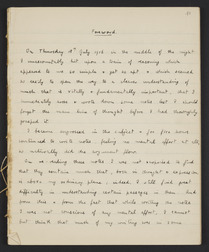 Foreword
On Thursday 1st July 1926 in the middle of the night
I unexpectedly hit upon a train of reasoning which
appeared to me so simple & yet so apt & which seemed
so easily to open the way to a clearer understanding of
much that is vitally & fundamentally important, that I
immediately rose & wrote down some notes lest I should
forget the main line of thought before I had thoroughly
grasped it.
I became engrossed in the subject & for five
continued to write notes, feeling no mental effort at all
so methodically did the argument flow.
On re-reading these notes I was not surprised to find
that they contain much that both in thought & expression
is above my ordinary plane; indeed I still find great
difficulty in understanding certain passages in them. And
from this & from the fact that while writing the notes
I was not conscious of any mental effort, I cannot
but think that much of my writing was in some